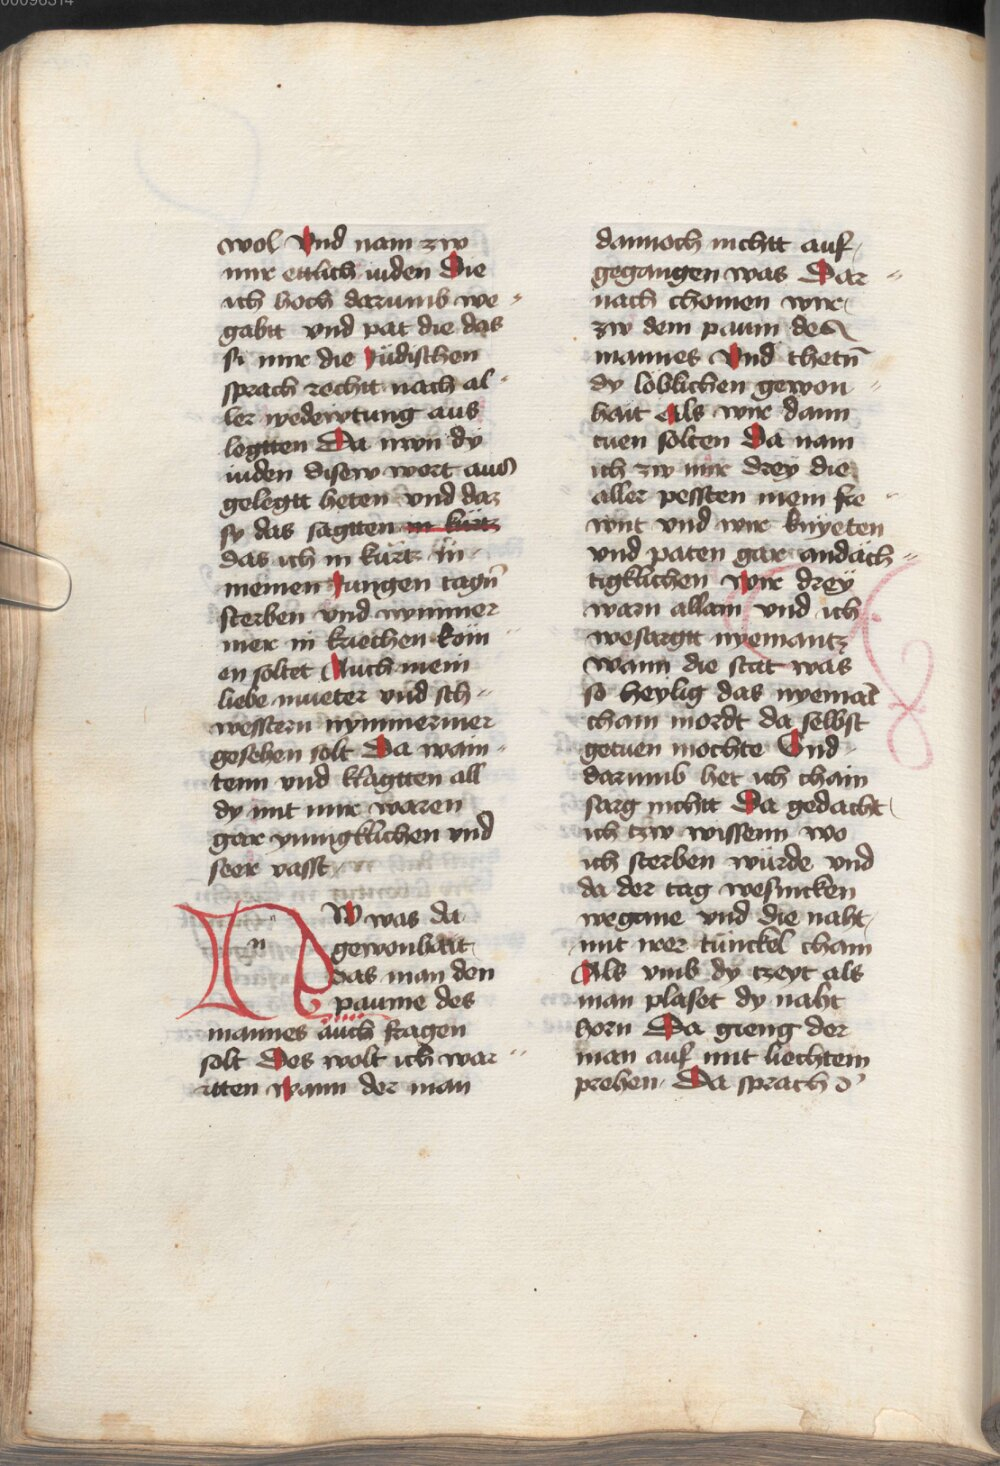 00096314
wol Vnd nam zw
mir ettlich iuden Die
ich hoch darumb we〃
gabtt vnd pat die das
si mir die Judischen
sprach rechtt nach al〃
ler wedewtung aus
logtten Da nwn dy
iuden disew wort aus
gelegtt heten vnd daz
sy das sagtten in kürtz
das ich in kürtz in
meinen Jungen tagn̄
sterben vnd nymmer
mer in kriechen kom〃
en soltet Auch mein
liebe mueter vnd sch〃
wesstern nymmermer
gesehen solt Da wain〃
tenn vnd klagtten all
dy mit mir waren
gar ynnigklichen vnd
seer vasst
n
NW was da
gewonhait
das man den
paume des
mannes auch fragen
solt Des wolt ich war〃
itten wann der man
dannoch nichtt auf
gegangen was Dar〃
nach chomen wir
zw dem paum des
mannes Vnd thetn̄
dy loblichen gewon〃
hait Als wir dann
tuen solten Da nam
ich zw mir drey die
aller pessten mein fre〃
wnt vnd wir knyeten
vnd paten gar andäch〃
tigklichen Wir drey
warn allain vnd ich
wesargtt nyemantz
wann die stat was
so heylig das nyemāt
cham mordt da selbst
getuen mochte Vnd
darumb het ich chain
sarg nichtt Da gedacht
ich tzw wissenn wo
ich sterben würde vnd
da der tag wesincken
wegane vnd die naht
mit irer tunckel cham
Als vmb dy tzeyt als
man plaset dy naht
horn Da gieng der
man auf mit liechtem
prehen Da sprach d'